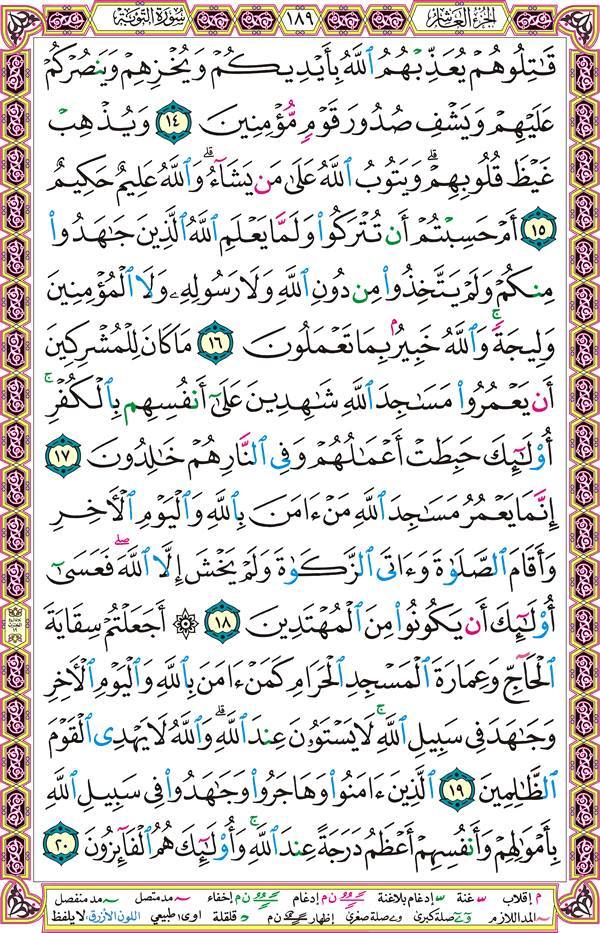 الجزء العاشر ١٨٩ سورة التوبة
قَـٰتِلُوهُمْ يُعَذِّبْهُمُ ٱللَّهُ بِأَيْدِيكُمْ وَيُخْزِهِمْ وَيَنصُرْكُمْ
عَلَيْهِمْ وَيَشْفِ صُدُورَ قَوْمٍ مُّؤْمِنِينَ ١٤ وَيُذْهِبْ
غَيْظَ قُلُوبِهِمْ ۗ وَيَتُوبُ ٱللَّهُ عَلَىٰ مَن يَشَآءُ ۗ وَٱللَّهُ عَلِيمٌ حَكِيمٌ
١٥ أَمْ حَسِبْتُمْ أَن تُتْرَكُوا۟ وَلَمَّا يَعْلَمِ ٱللَّهُ ٱلَّذِينَ جَـٰهَدُوا۟
مِنكُمْ وَلَمْ يَتَّخِذُوا۟ مِن دُونِ ٱللَّهِ وَلَا رَسُولِهِۦ وَلَا ٱلْمُؤْمِنِينَ
وَلِيجَةً ۚ وَٱللَّهُ خَبِيرٌۢ بِمَا تَعْمَلُونَ ١٦ مَا كَانَ لِلْمُشْرِكِينَ
أَن يَعْمُرُوا۟ مَسَـٰجِدَ ٱللَّهِ شَـٰهِدِينَ عَلَىٰٓ أَنفُسِهِم بِٱلْكُفْرِ ۚ
أُو۟لَـٰٓئِكَ حَبِطَتْ أَعْمَـٰلُهُمْ وَفِى ٱلنَّارِ هُمْ خَـٰلِدُونَ ١٧
إِنَّمَا يَعْمُرُ مَسَـٰجِدَ ٱللَّهِ مَنْ ءَامَنَ بِٱللَّهِ وَٱلْيَوْمِ ٱلْـَٔاخِرِ
وَأَقَامَ ٱلصَّلَوٰةَ وَءَاتَى ٱلزَّكَوٰةَ وَلَمْ يَخْشَ إِلَّا ٱللَّهَ ۖ فَعَسَىٰٓ
أُو۟لَـٰٓئِكَ أَن يَكُونُوا۟ مِنَ ٱلْمُهْتَدِينَ ١٨ ۞ أَجَعَلْتُمْ سِقَايَةَ
ٱلْحَآجِّ وَعِمَارَةَ ٱلْمَسْجِدِ ٱلْحَرَامِ كَمَنْ ءَامَنَ بِٱللَّهِ وَٱلْيَوْمِ ٱلْـَٔاخِرِ
وَجَـٰهَدَ فِى سَبِيلِ ٱللَّهِ ۚ لَا يَسْتَوُۥنَ عِندَ ٱللَّهِ ۗ وَٱللَّهُ لَا يَهْدِى ٱلْقَوْمَ
ٱلظَّـٰلِمِينَ ١٩ ٱلَّذِينَ ءَامَنُوا۟ وَهَاجَرُوا۟ وَجَـٰهَدُوا۟ فِى سَبِيلِ ٱللَّهِ
بِأَمْوَٰلِهِمْ وَأَنفُسِهِمْ أَعْظَمُ دَرَجَةً عِندَ ٱللَّهِ ۚ وَأُو۟لَـٰٓئِكَ هُمُ ٱلْفَآئِزُونَ ٢٠
م إقلاب س غنة س إدغام بلاغنة ن م إدغام ن م إخفاء ~ مد متصل ~ مد منفصل
~ المد اللازم وے صلة كبرى وے صلة صغرى إظهار ن م د قلقلة اوى طبيعي اللون الأزرق: لا يلفظ